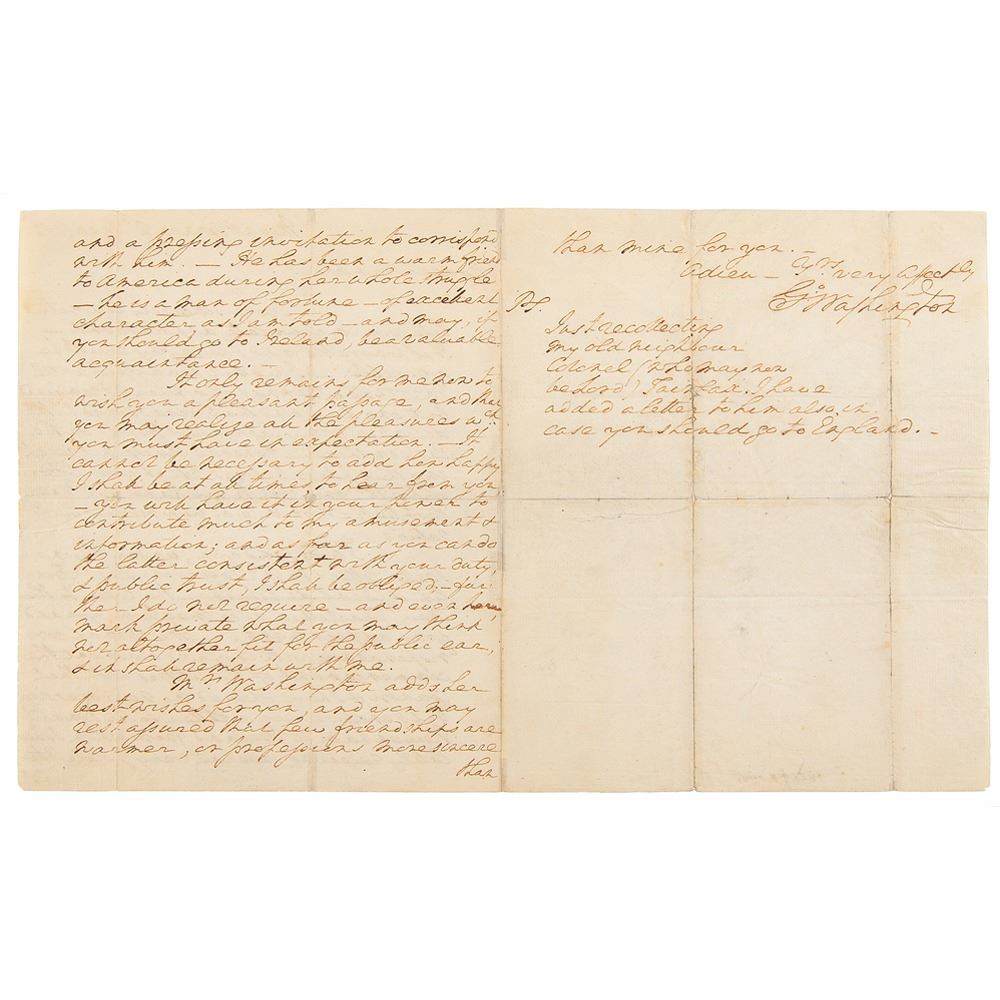 and a pressing invitation to correspond
with him. — He has been a warm friend
to America during her whole struggle
— he is a man of fortune — of excellent
character as I am told — and may, if
you should go to Ireland, be a valuable
acquaintance. —
It only remains for me now to
wish you a pleasant passage, and that
you may realize all the pleasures wch
you must have in expectation. — It
cannot be necessary to add how happy
I shall be at all times, to hear from you,
— you will have it in your power to
contribute much to my amusement &
information; and as far as you can do
the latter consistent with your duty,
& public trust, I shall be obliged. — fur
ther I do not require — and even here
mark private what you may think
not altogether fit for the public ear,
& it shall remain with me.
Mrs. Washington adds her
best wishes for you, and you may
rest assured that few friendships are
warmer, or professions more sincere
than
than mine for you. —
Adieu — Yrs very affectly
Go Washington
PS.
Just recollecting
my old neighbour
Colonel (who may now
be Lord) Fairfax. I have
added a letter to him also, in
case you should go to England. —